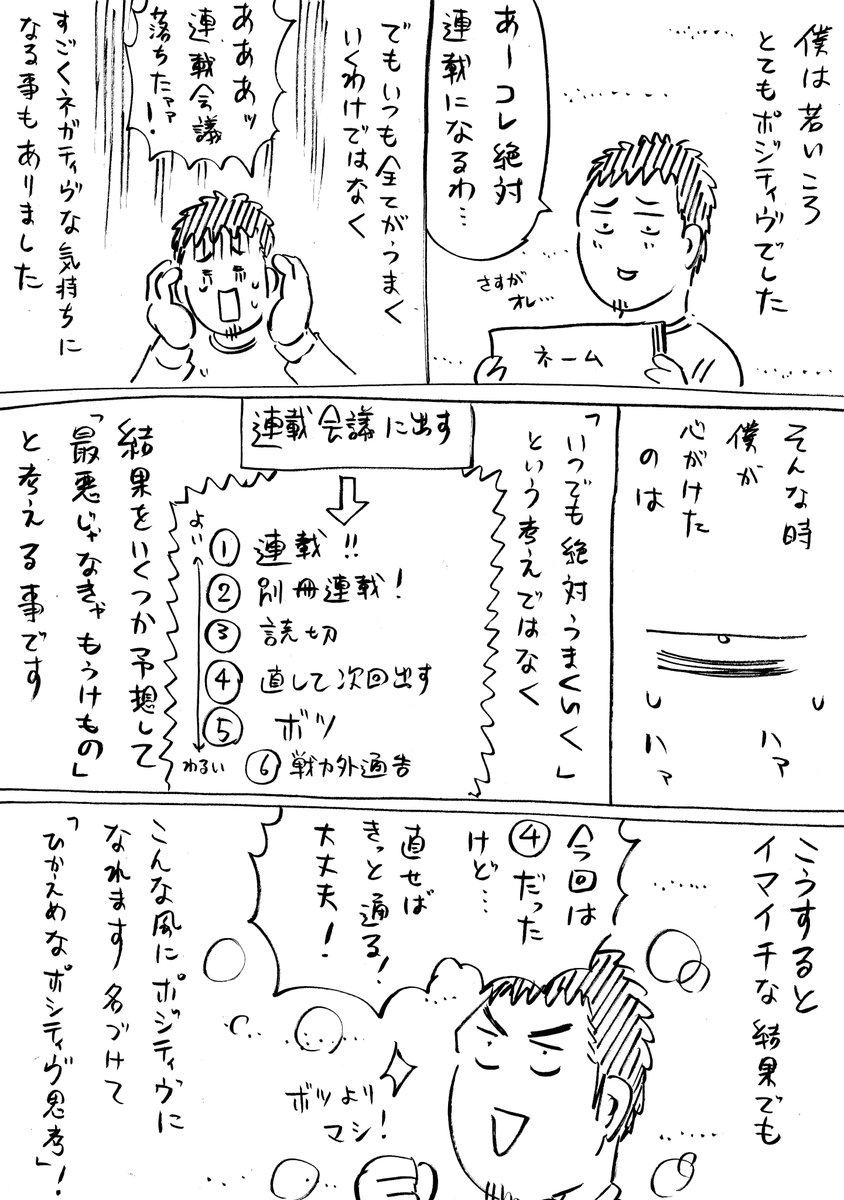 僕は若いころ
とてもポジティヴでした
あーコレ絶対
連載になるわ…
さすが
オレ…
ネーム
でもいつも全てがうまく
いくわけではなく
あああッ
連載会議
落ちたァァ!
すごくネガティヴな気持ちに
なる事もありました
そんな時
僕が
心がけた
のは
ハァ
ハァ
「いつでも絶対うまくいく」
という考えではなく
連載会議に出す
よい
① 連載!!
② 別冊連載!
③ 読切
④ 直して次回出す
⑤ ボツ
わるい
⑥ 戦力外通告
結果をいくつか予想して
「最悪じゃなきゃもうけもの」
と考える事です
こうすると
イマイチな結果でも
今回は
④だった
けど…
直せば
きっと通る!
大丈夫!
ボツより
マシ!
こんな風にポジティヴに
なれます 名づけて
「ひかえめなポシティヴ思考」!